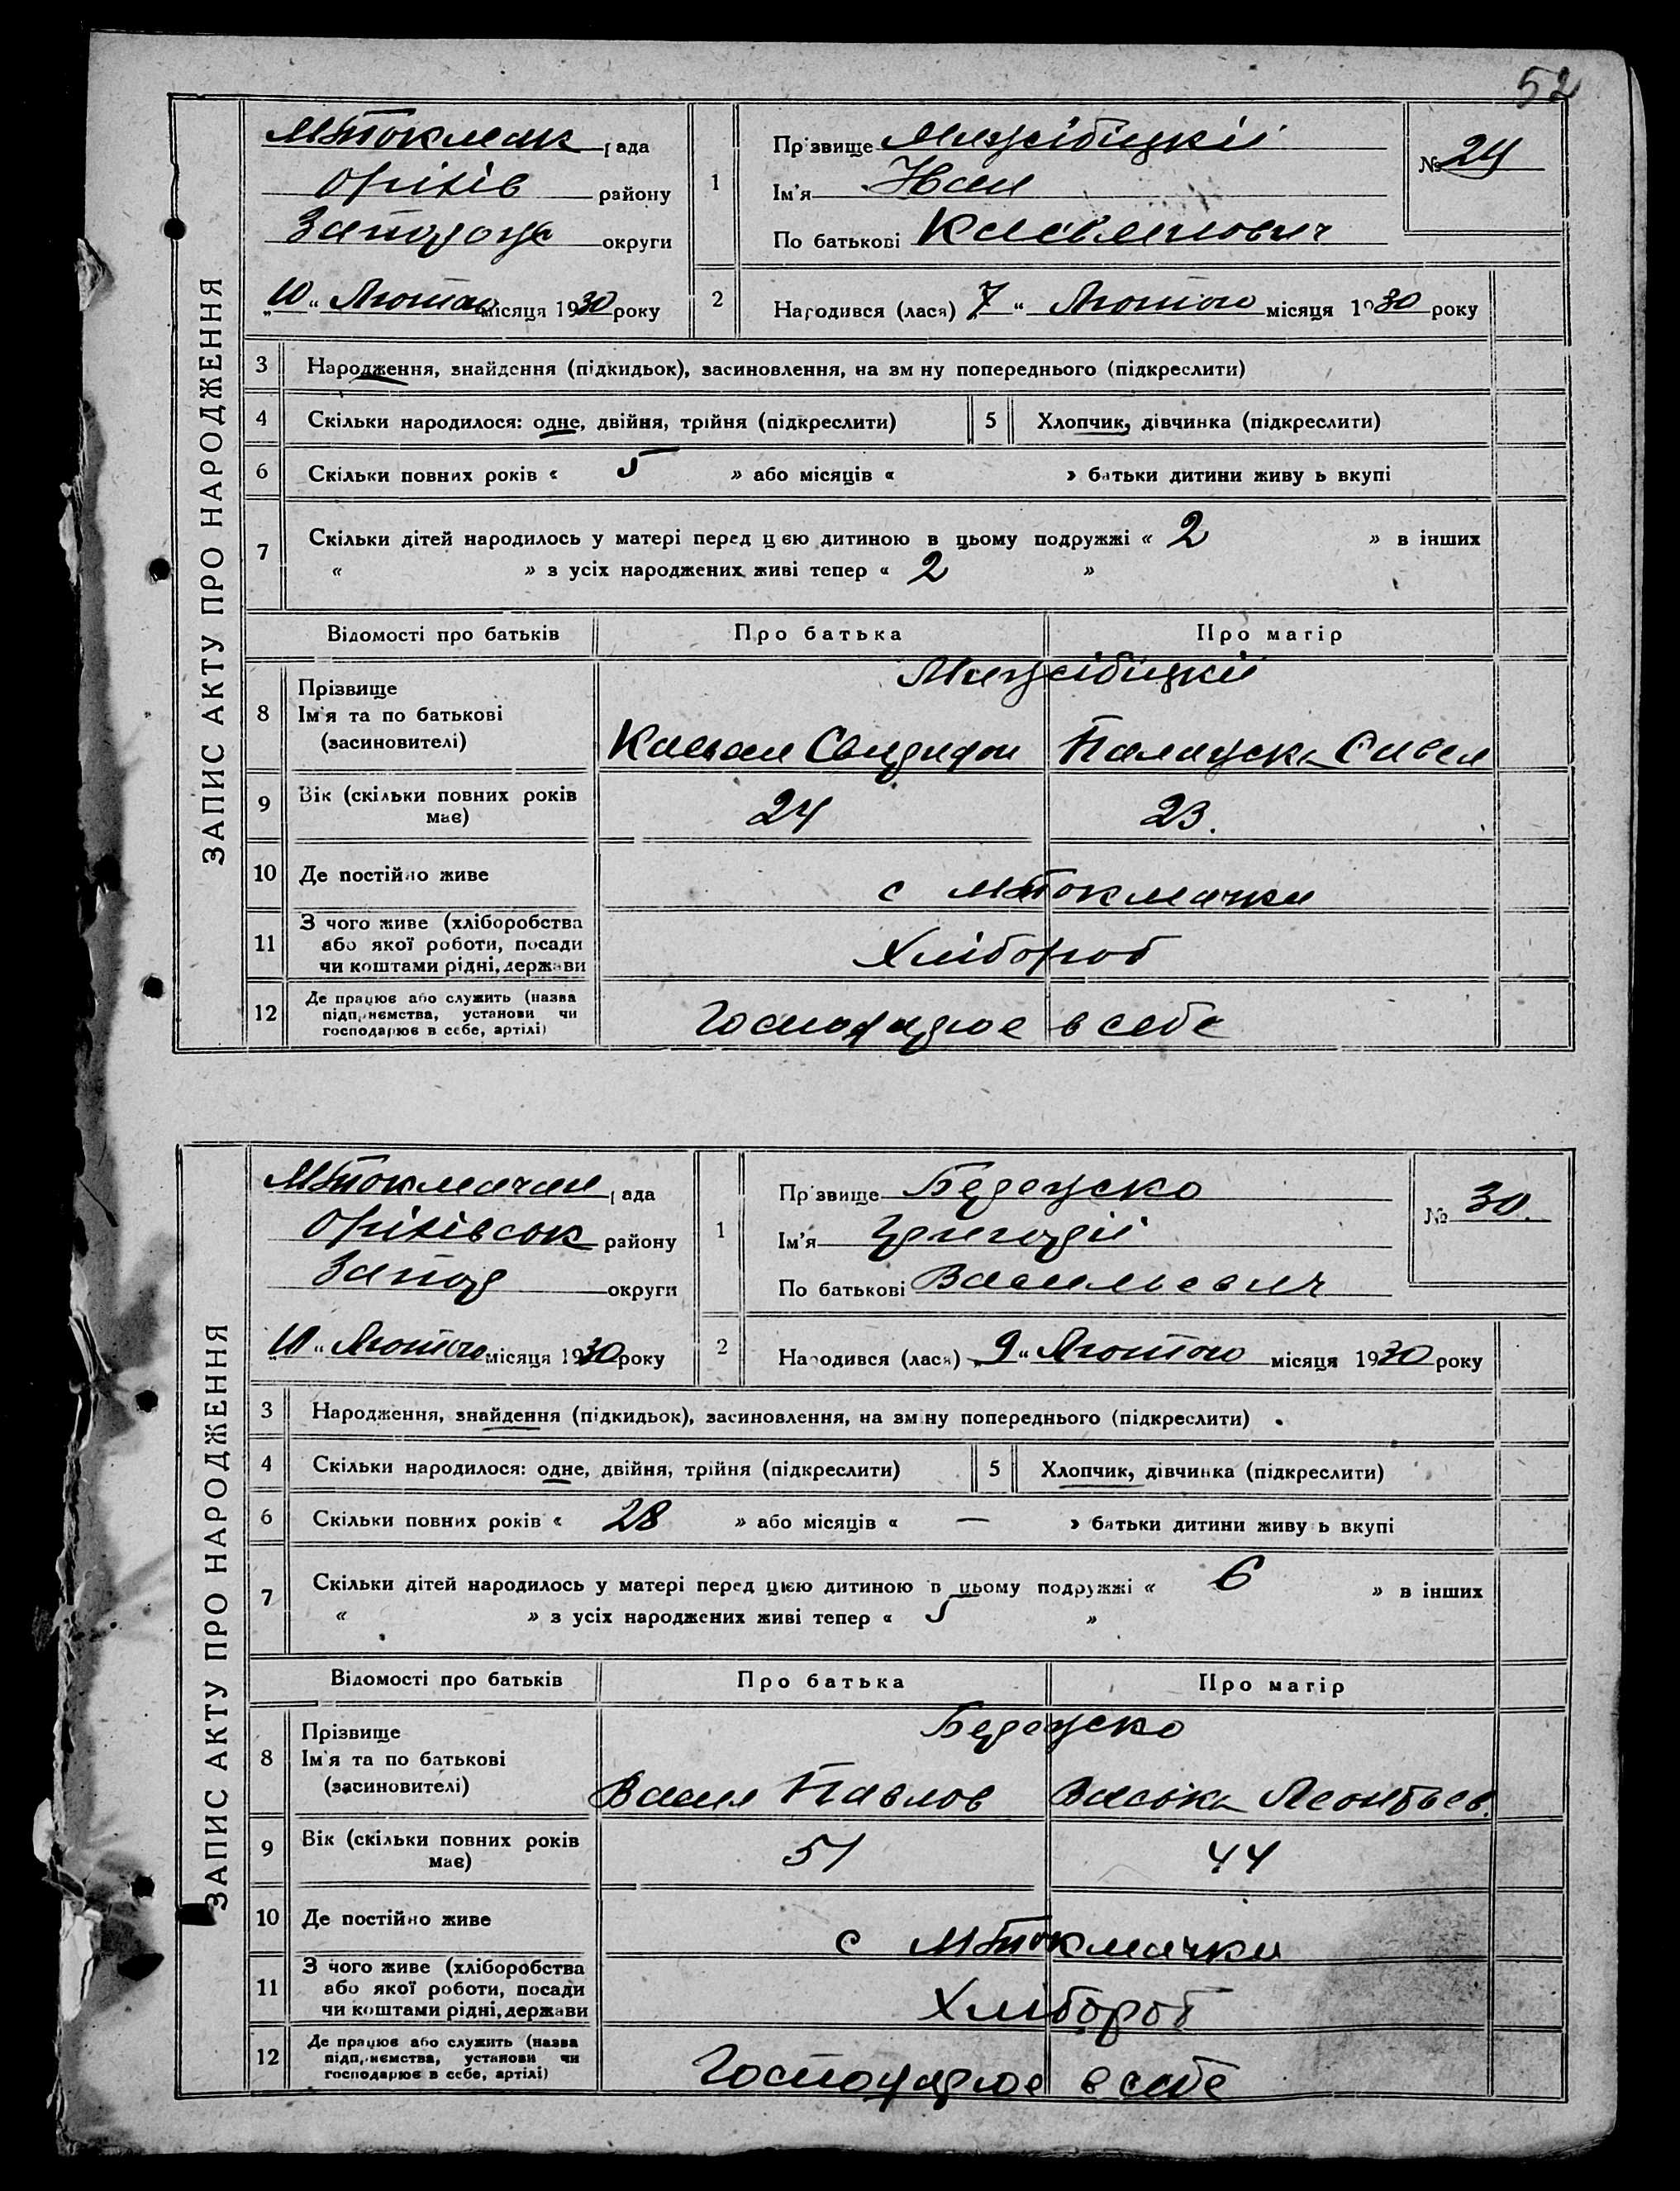 52
ЗАПИС АКТУ ПРО НАРОДЖЕННЯ
МТокмак рада
Оріхів району
Запорожс округи
10 " Лютого місяця 1930 року
1
Прізвище Межібіцкій
Ім'я Иван
По батькові Касьянович
№ 29
2
Народився (лася) 7 " Лютого місяця 1930 року
3 Народження, знайдення (підкидьок), засиновлення, на зміну попереднього (підкреслити)
4 Скільки народилося: одне, двійня, трійня (підкреслити) 5 Хлопчик, дівчинка (підкреслити)
6 Скільки повних років « 5 » або місяців « » батьки дитини живуть вкупі
7 Скільки дітей народилось у матері перед цією дитиною в цьому подружжі « 2 » в інших
« » з усіх народжених живі тепер « 2 »
Відомості про батьків Про батька Про матір
8 Прізвище
Ім'я та по батькові
(засиновителі)
Межібіцкій
Касьян Свиридон Пелагуска Савел
9 Вік (скільки повних років має) 24 23.
10 Де постійно живе с МТокмачки
11 З чого живе (хліборобства
або якої роботи, посади
чи коштами рідні, держави
Хлібороб
12 Де працює або служить (назва
підприємства, установи чи
господарює в себе, артілі)
Господарює в себе
ЗАПИС АКТУ ПРО НАРОДЖЕННЯ
МТокмачан рада
Оріхівськ району
Запор округи
10 " Лютого місяця 1930 року
1
Прізвище
Ім'я Григорій
По батькові Васильевич
№ 30.
2
Народився (лася) „ 9 " Лютого місяця 1930 року
3 Народження, знайдення (підкидьок), засиновлення, на зміну попереднього (підкреслити)
4 Скільки народилося: одне, двійня, трійня (підкреслити) 5 Хлопчик, дівчинка (підкреслити)
6 Скільки повних років « 28 » або місяців « — » батьки дитини живуть вкупі
7 Скільки дітей народилось у матері перед цією дитиною в цьому подружжі « 6 » в інших
« » з усіх народжених живі тепер « 5 »
Відомості про батьків Про батька Про матір
8 Прізвище
Ім'я та по батькові
(засиновителі)
Васил Павлов Васька Леонтьев.
9 Вік (скільки повних років має) 51 44
10 Де постійно живе с МТокмачки
11 З чого живе (хліборобства
або якої роботи, посади
чи коштами рідні, держави
Хлібороб
12 Де працює або служить (назва
підприємства, установи чи
господарює в себе, артілі)
Господарює в себе